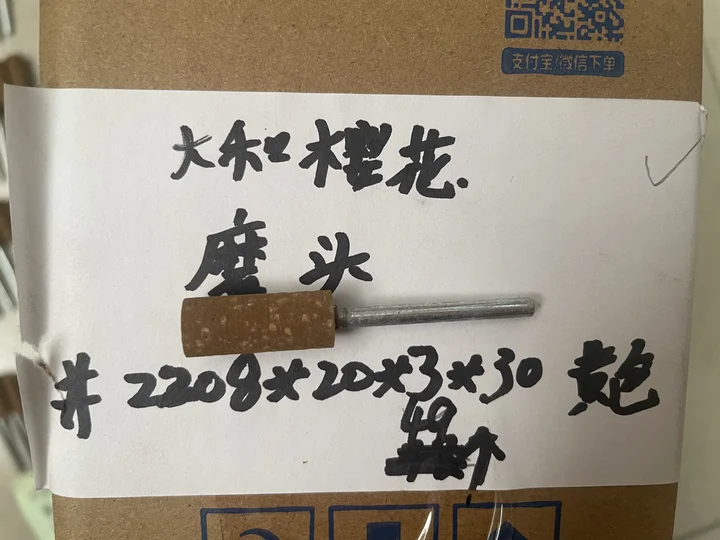 支付宝/微信下单
大和樱花.
磨头
# 2208*20*3*30 黄色
49个